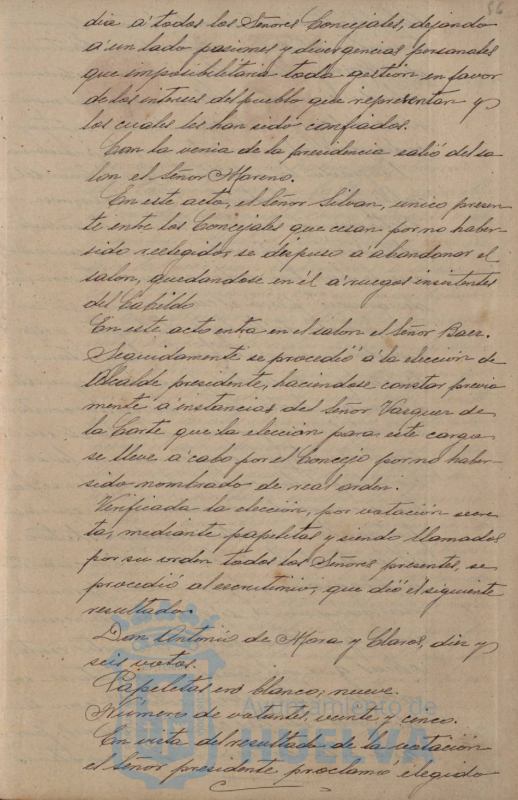 56
dia á todos los Señores Concejales, dejando
á un lado pasiones y divergencias personales
que imposibilitaria toda gestión en favor
de los intereses del pueblo que representan y
los cuales les han sido confiados.
Con la venia de la presidencia salió del sa-
lon el Señor Moreno.
En este acto, el Señor Silvan, unico presen-
te entre los Concejales que cesan por no haber
sido reelegidos, se dispuso á abandonar el
salon, quedandose en él á ruegos insistentes
del Cabildo
En este acto entra en el salon el Señor Baez.
Seguidamente se procedió á la elección de
Alcalde presidente, haciendose constar previa
mente á instancias del Señor Vazquez de
la Corte que la elección para este cargo
se lleve á cabo por el Concejo por no haber
sido nombrado de real orden.
Verificada la elección, por votación secre-
ta, mediante papeletas y siendo llamados
por su orden todos los Señores presentes, se
procedió al escrutinio, que dió el siguiente
resultado.
Don Antonio de Mora y Claros, diez y
seis votos.
Papeletas en blanco, nueve.
Número de votantes, veinte y cinco.
En vista del resultado de la votación
el Señor presidente proclamó elegido
Ayuntamiento de
HUELVA